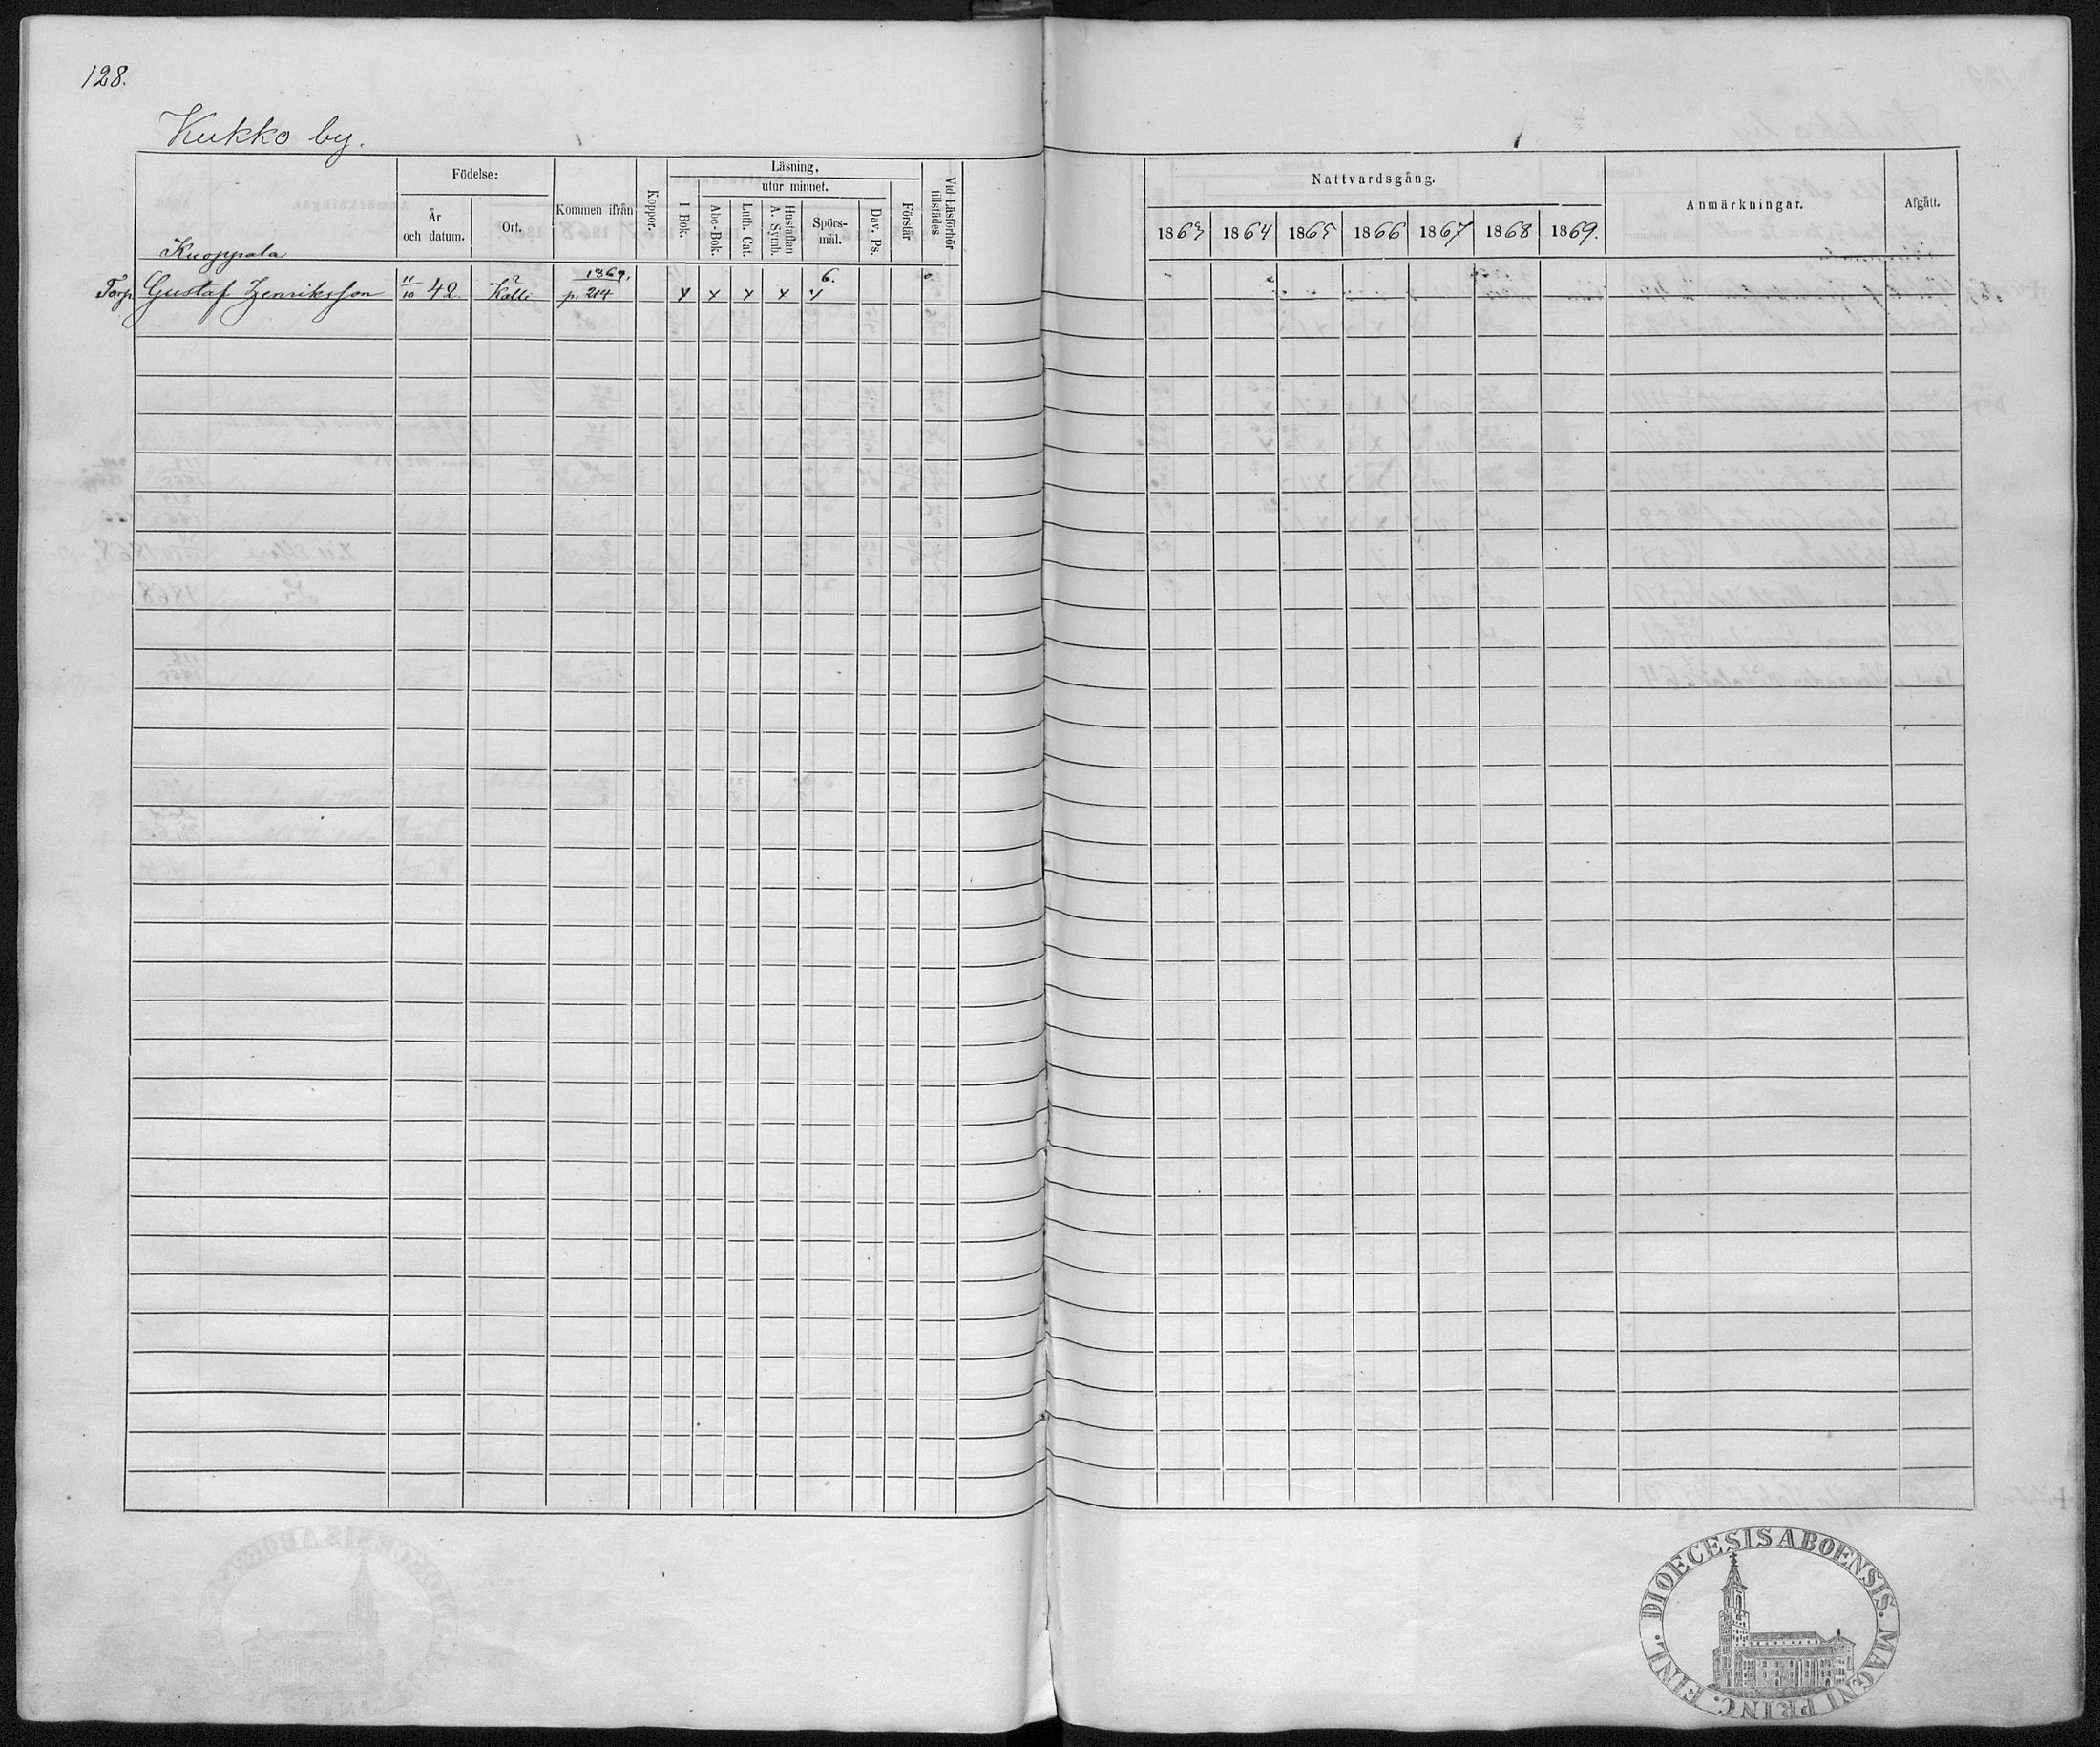 128.
Kukko by.
Födelse:
År
och datum.
Ort.
Kommen ifrån
Koppor.
Läsning,
utur minnet.
I Bok.
Abc-Bok.
Luth. Cat.
Hustaflan
A. Symb.
Spörs-
mål.
Dav. Ps.
Förstår
Vid Läsförhör
tillstädes
Nattvardsgång.
1863 1864 1865 1866 1867 1868 1869.
Anmärkningar.
Afgått.
Knoppala
Torp. Gustaf Henriksson 11/10 42. Källi 1869. p. 214 x x x x 6. x
DIOECESIS ABOENSIS. MAGNI PRINC. FINL.